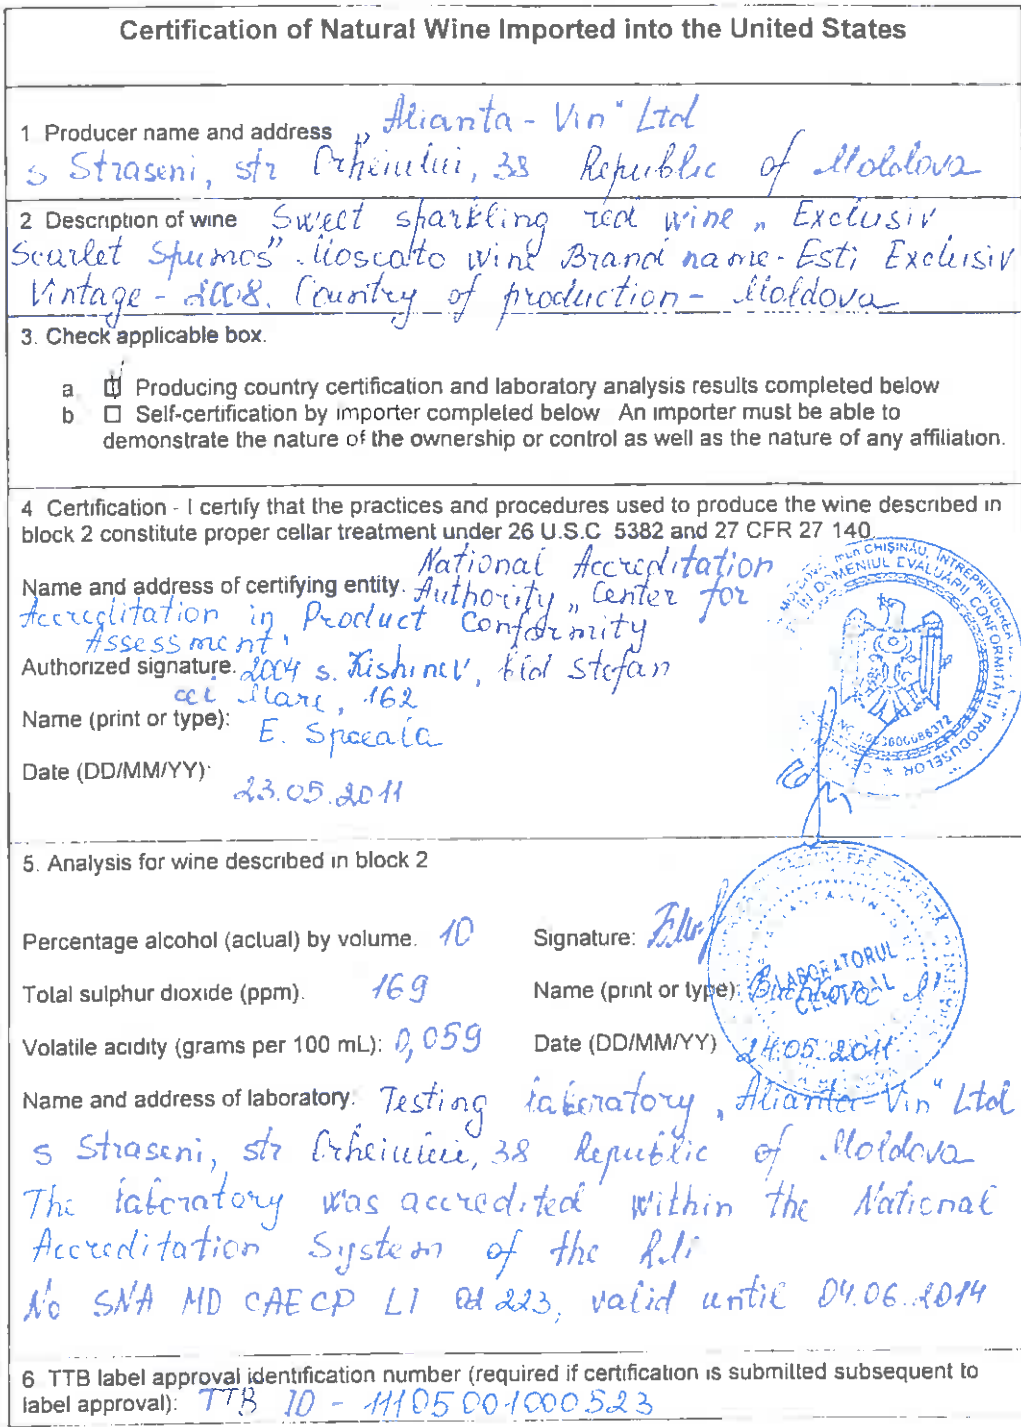 Certification of Natural Wine Imported into the United States
1 Producer name and address „Alianta - Vin" Ltd
s Straseni, str Orheiului, 38 Republic of Moldova
2 Description of wine Sweet sparkling red wine „Exclusiv
Scarlet Spumos" Moscato wine Brand name - Esti Exclusiv
Vintage - 2008. Country of production - Moldova
3. Check applicable box.
a Producing country certification and laboratory analysis results completed below
b ☐ Self-certification by importer completed below An importer must be able to
demonstrate the nature of the ownership or control as well as the nature of any affiliation.
4 Certification - I certify that the practices and procedures used to produce the wine described in
block 2 constitute proper cellar treatment under 26 U.S.C 5382 and 27 CFR 27 140
National Accreditation
Name and address of certifying entity. Authority „Center for
Accreditation in Product Conformity
Assessment"
Authorized signature. 2004 s. Kishinev, Stefan
cel Mare, 162
Name (print or type): E.
Date (DD/MM/YY)
23.05.2011
CHIŞINĂU, ÎNTREPRINDEREA
ÎN DOMENIUL EVALUĂRII CONFORMITĂŢII PRODUSELOR
5. Analysis for wine described in block 2
Percentage alcohol (actual) by volume. 10 Signature:
Total sulphur dioxide (ppm). 169 Name (print or type):
LABORATORUL
CENTRAL
Volatile acidity (grams per 100 mL): 0,059 Date (DD/MM/YY) 24.05.2011
Name and address of laboratory: Testing laboratory „Alianta-Vin" Ltd
s Straseni, str Orheiului, 38 Republic of Moldova
The laboratory was accredited within the National
Accreditation System of the RM
No SNA MD CAECP LI 02 223, valid until 04.06.2014
6 TTB label approval identification number (required if certification is submitted subsequent to
label approval): TTB ID - 11105001000523